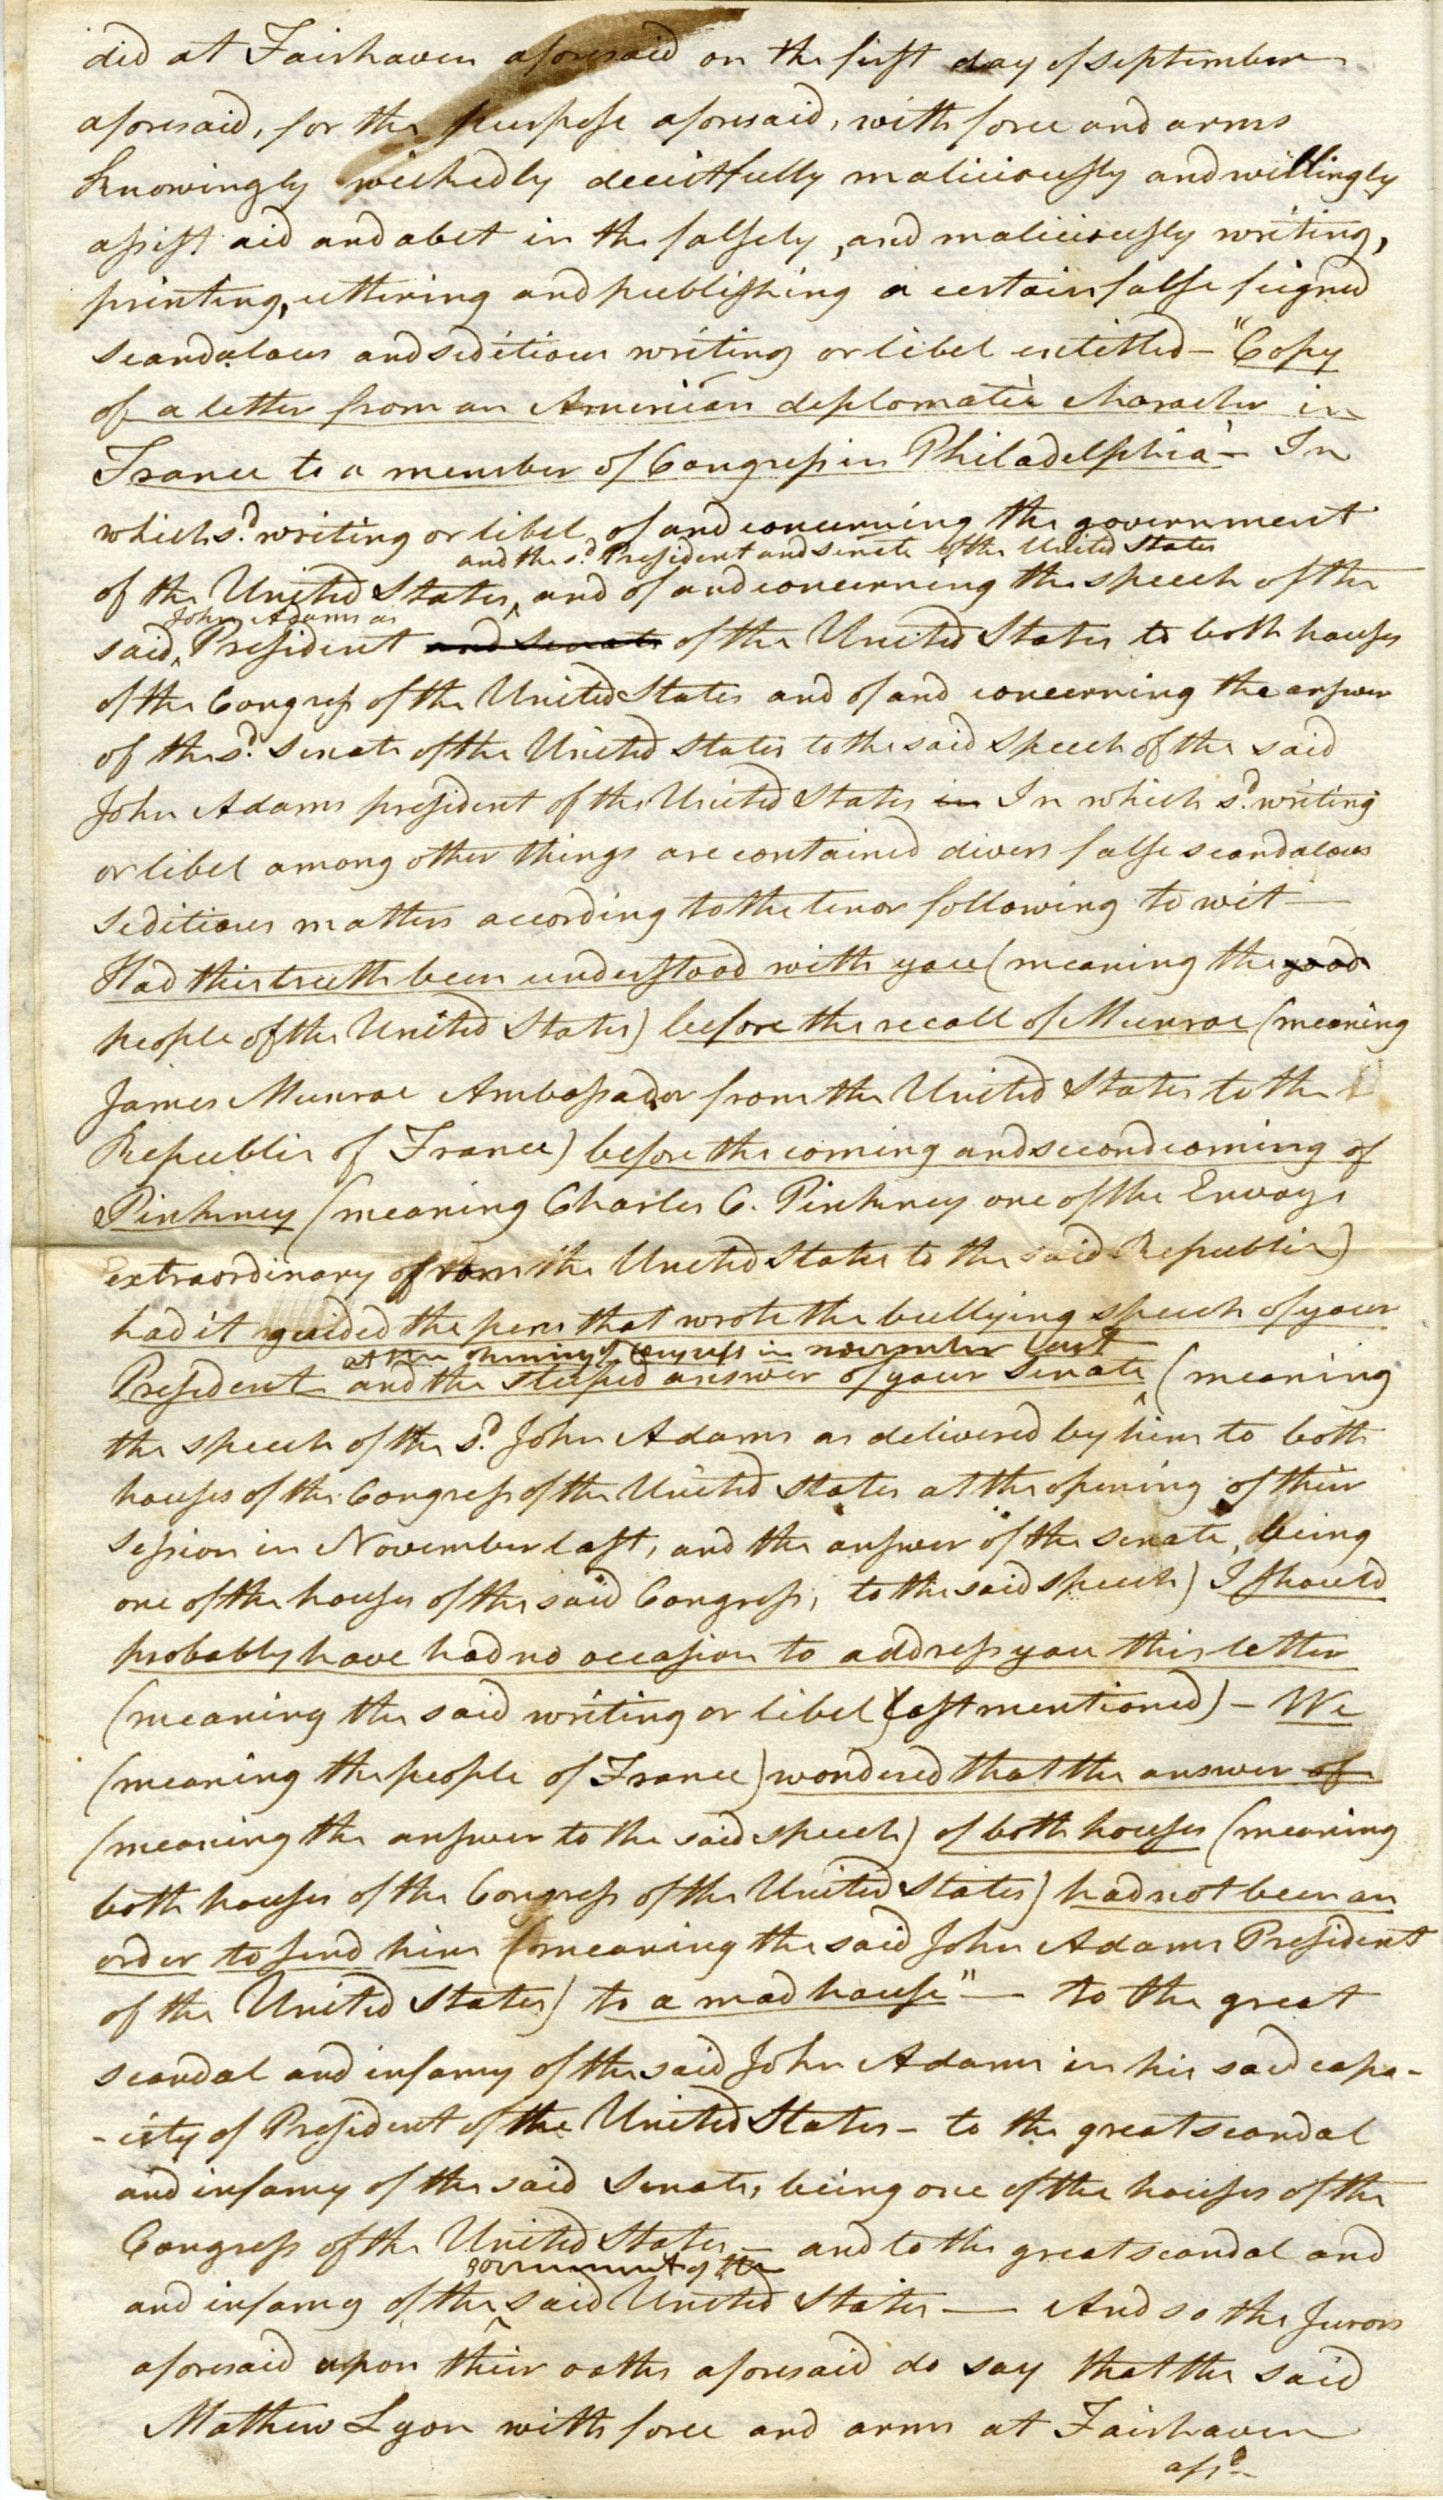 did at Fairhaven aforesaid on the first day of September
aforesaid, for the purpose aforesaid, with force and arms
Knowingly wickedly deceitfully maliciously and willingly
assist aid and abet in the falsely, and maliciously writing,
printing, uttering and publishing a certain false feigned
scandalous and seditious writing or libel entitled — "Copy
of a letter from an American diplomatic character in
France to a member of Congress in Philadelphia" — In
which sd. writing or libel, of and concerning the government
and the sd. President and senate of the United States
of the United States, and of and concerning the speech of the
John Adams as
said President and Senate of the United States to both houses
of the Congress of the United States and of and concerning the answer
of the sd. Senate of the United States to the said speech of the said
John Adams president of the United States in In which sd. writing
or libel among other things are contained divers false scandalous
seditious matters according to the tenor following to wit —
Had this truth been understood with you (meaning the good
people of the United States) before the recall of Munroe (meaning
James Munroe Ambassador from the United States to the
Republic of France) before the coming and second coming of
Pinkney (meaning Charles C. Pinkney one of the Envoys
extraordinary from the United States to the said Republic)
had it guided the pen that wrote the bullying speech of your
at the opening of Congress in november last
President and the stupid answer of your Senate (meaning
the speech of the sd. John Adams as delivered by him to both
houses of the Congress of the United States at the opening of their
session in November last, and the answer of the senate, being
one of the houses of the said Congress, to the said speech) I should
probably have had no occasion to address you this letter
(meaning the said writing or libel (last mentioned) — We
(meaning the people of France) wondered that the answer of
(meaning the answer to the said speech) of both houses (meaning
both houses of the Congress of the United States) had not been an
order to send him (meaning the said John Adams President
of the United States) to a mad house" — to the great
scandal and infamy of the said John Adams in his said capa-
-city of President of the United States — to the great scandal
and infamy of the said Senate, being one of the houses of the
Congress of the United States — and to the great scandal and
government of the
and infamy of the said United States — And so the Jurors
aforesaid upon their oaths aforesaid do say that the said
Mathew Lyon with force and arms at Fairhaven
afsd